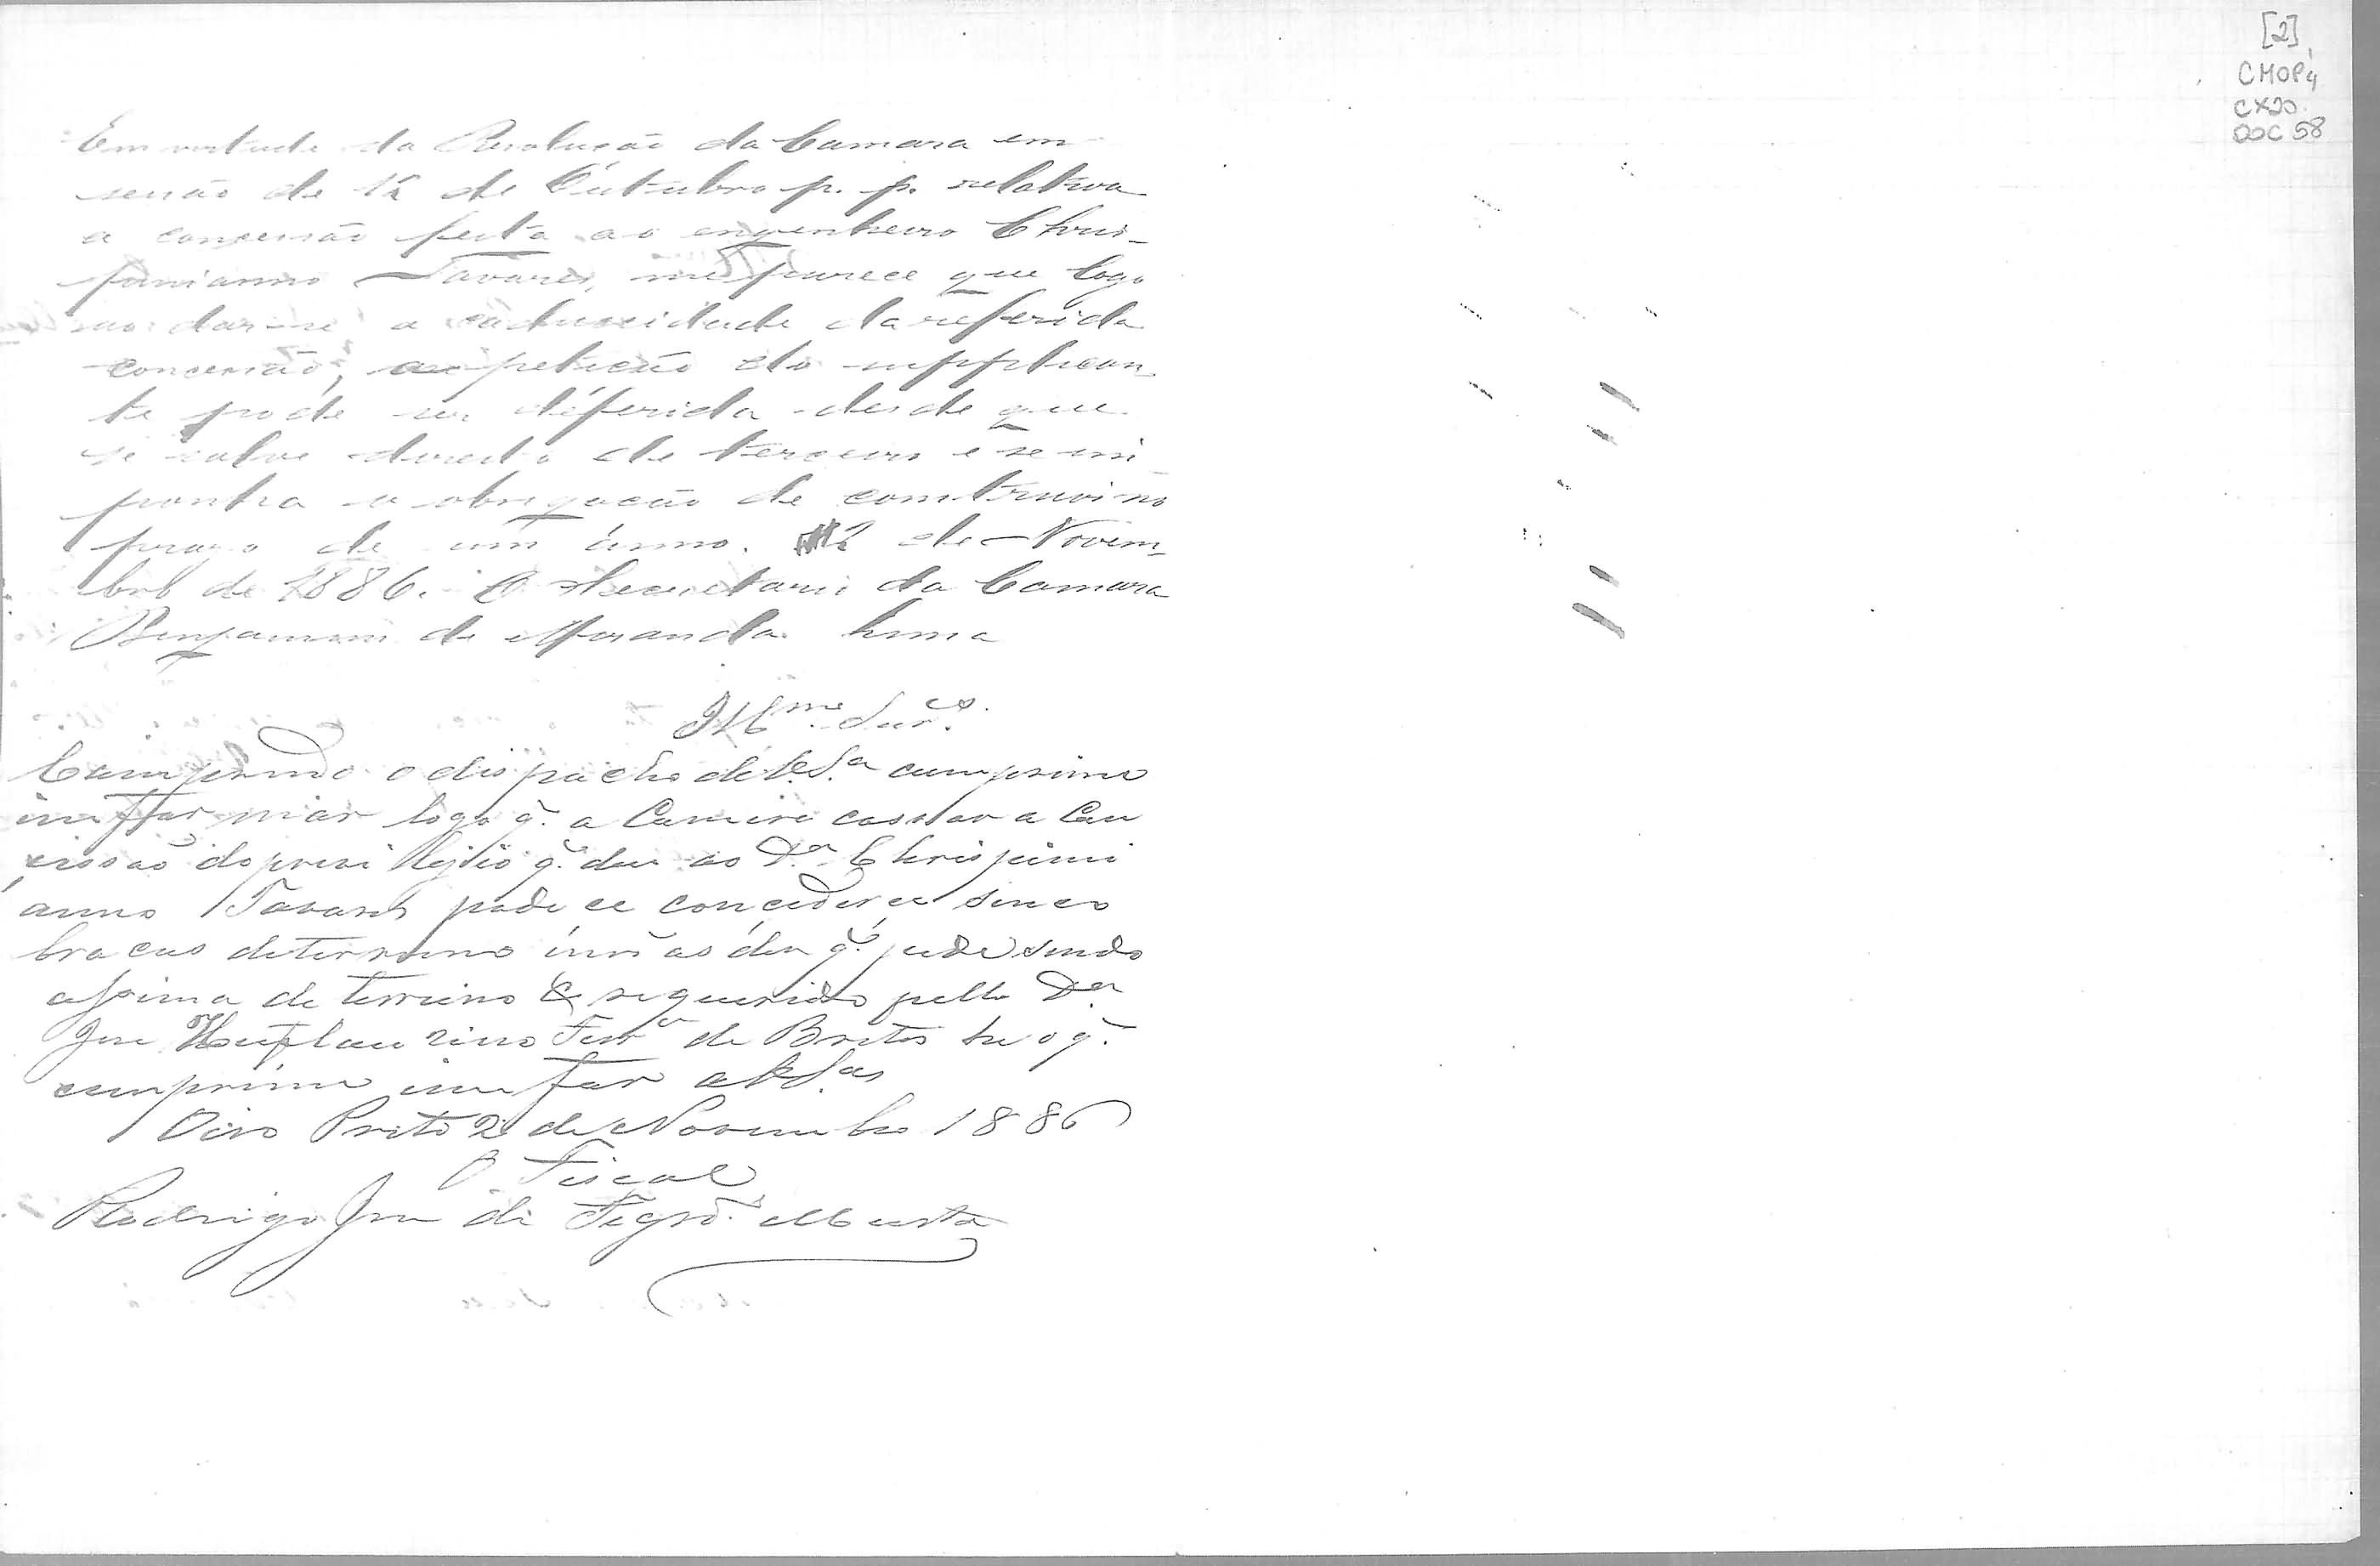 [2]
CMOP
CX20
DOC 58
Em virtude da Resolução da Camara em
sessão de de Outubro p. p. relativa
a concessão feita ao engenheiro Chris-
pinianno Tavares, me parece que logo
ao dar-se a caducidade da referida
concessão, a petição do supplican-
te pode ser deferida desde que
se salve direito de terceiro e se im-
ponha a obrigação de construir no
prazo de um anno. 2 de Novem-
bro de 1886. O Secretario da Camara
Benjamim de Miranda Lima
Cumprindo o dispacho de V.S.ª cumprime
imffarmar logo q. a Camera cassar a Con
cissão do previ lejio q. deu ao D.or Chrispini
anno Tavares pode ce conceder ce sinco
bracas de terreno q. pede sendo
assima de terreno requerido pello D.or
Jose de Britos he o q.
cumprime imfar a V.S.as
Oiro Preto 2 de Novembro 1886
O Fiscal
Rodrigo Jose de Figrd.º Murta